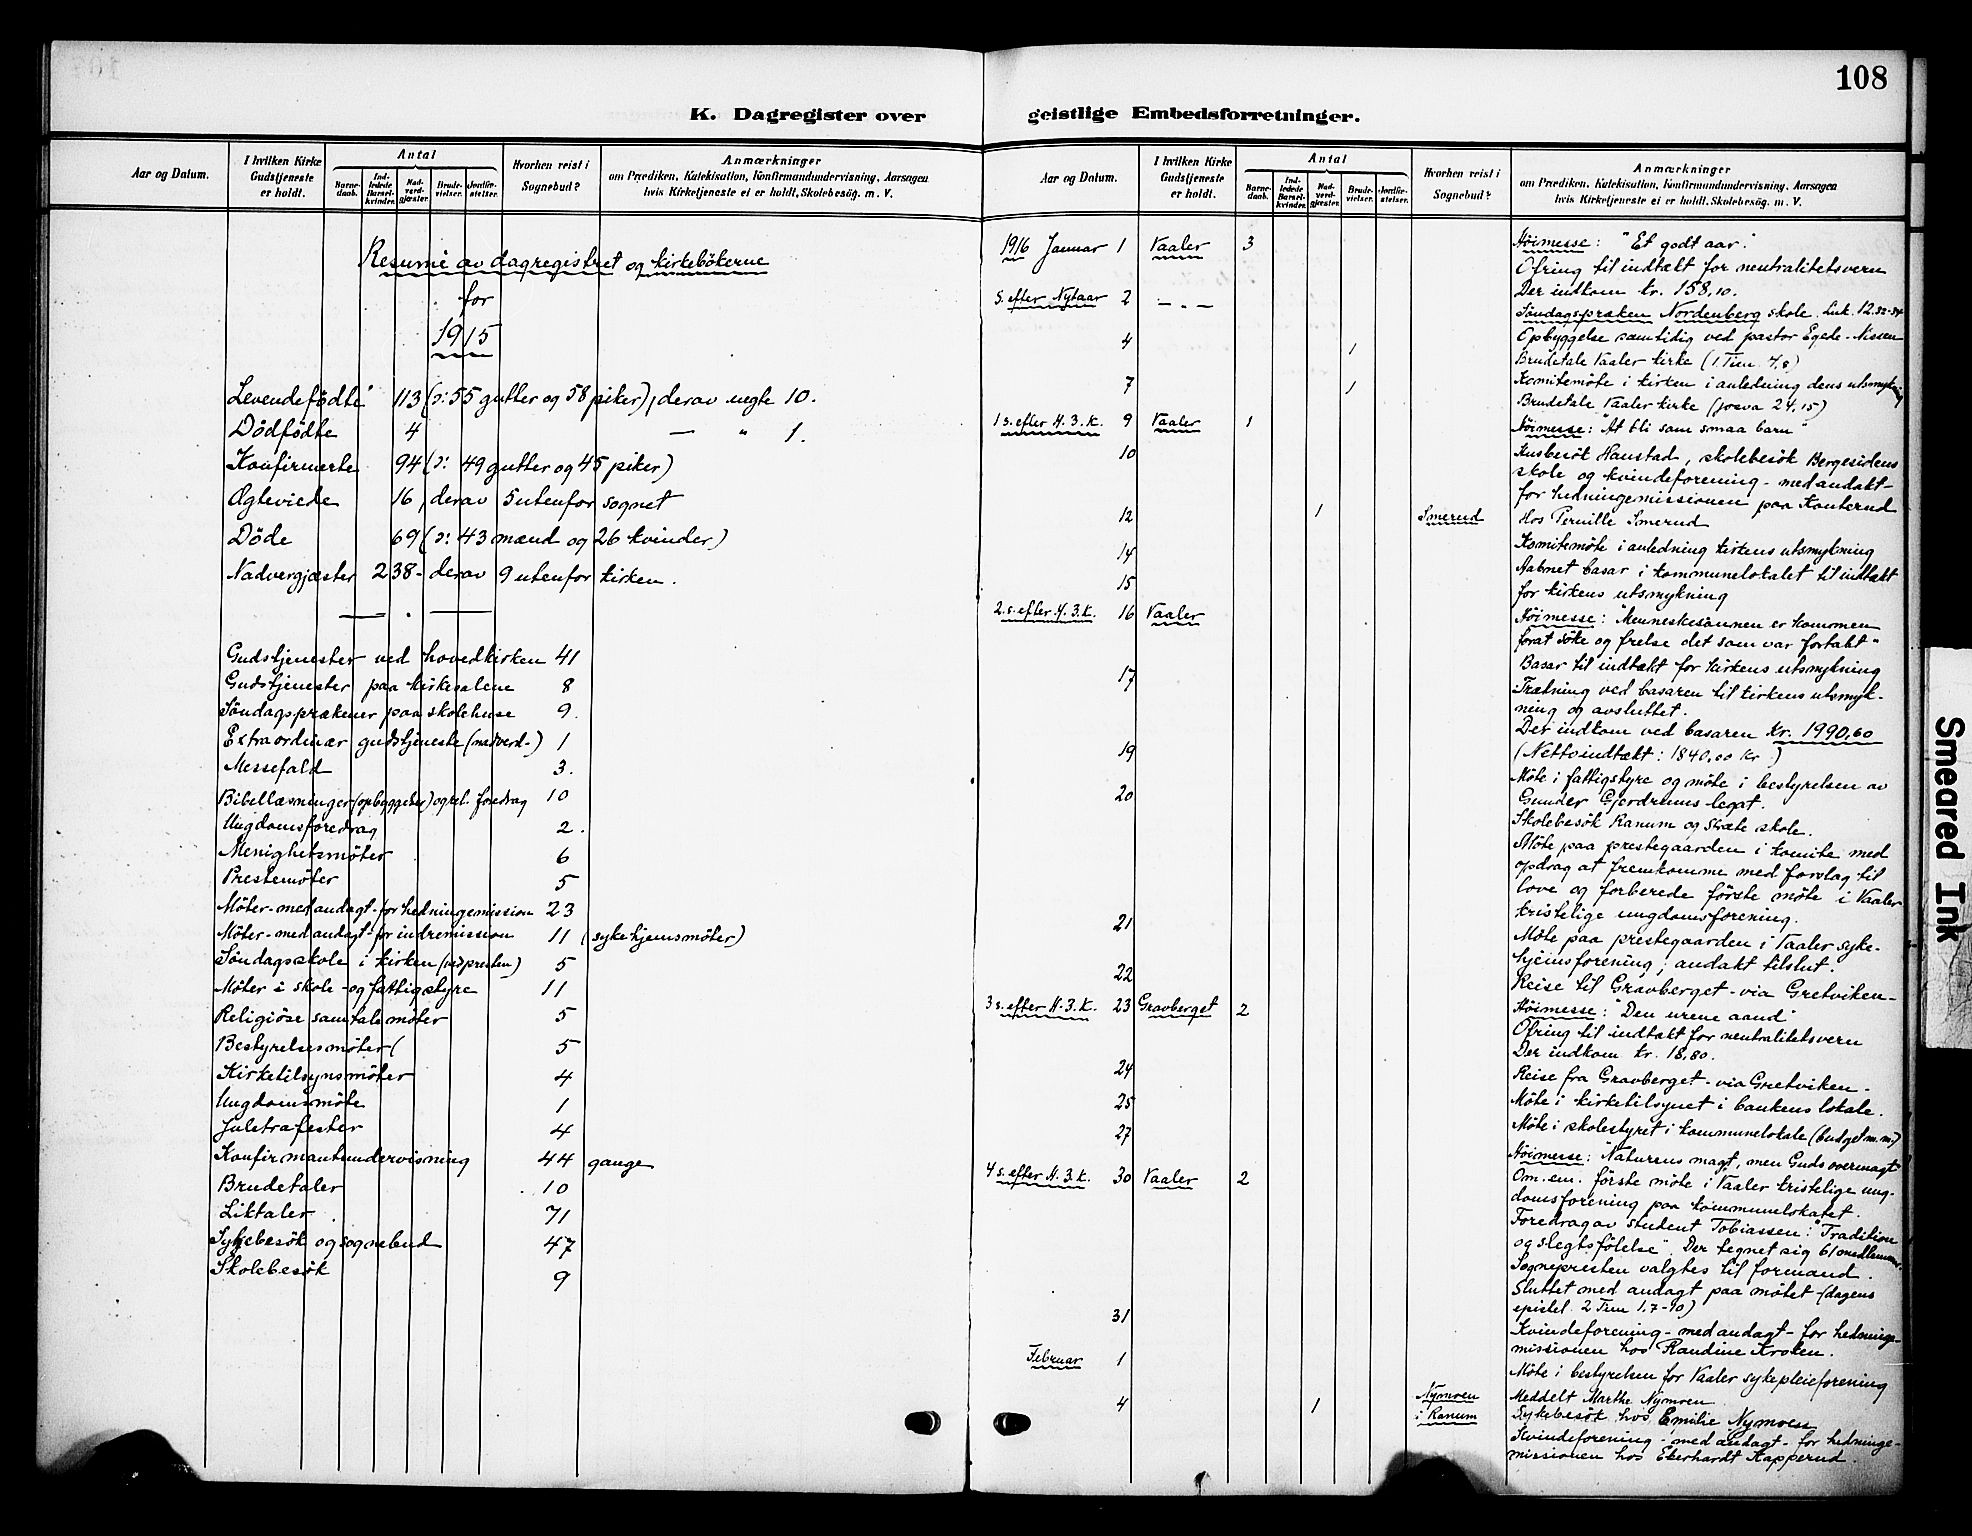 108
K. Dagregister over geistlige Embedsforretninger.
Aar og Datum.
I hvilken Kirke Gudstjeneste er holdt.
Antal
Barnedaab.
Indledede Barselkvinder.
Nadverdgjæster.
Brudevielser.
Jordfæstelser.
Hvorhen reist i Sognebud?
Anmærkninger
om Prædiken, Katekisation, Konfirmandundervisning, Aarsagen
hvis Kirketjeneste ei er holdt, Skolebesög. m. V.
Resumé av dagregistret og kirkebökerne
for
1915
Levendefödte 113 (ɔ: 55 gutter og 58 piker), derav uegte 10.
Dödfödte 4 — " 1.
Konfirmerte 94 (ɔ: 49 gutter og 45 piker)
Ægteviede 16, derav 5 utenfor sognet
Döde 69 (ɔ: 43 mænd og 26 kvinder)
Nadvergjæster 238 - derav 9 utenfor kirken.
Gudstjenester ved hovedkirken 41
Gudstjenester paa kirkesalene 8
Söndagsprækener paa skolehuse 9.
Extraordinær gudstjeneste (nadverd-) 1
Messefald 3.
Bibellæsninger (opbyggelser) og rel. foredrag 10
Ungdomsforedrag 2.
Menighetsmöter 6
Prestemöter 5
Möter - med andagt - for hedningemission 23
Möter - med andagt - for indremission 11 (sykehjemsmöter)
Söndagsskole i kirken (ved presten) 5
Möter i skole - og fattigstyre 11
Religiöse samtalemöter 5
Bestyrelsesmöter ( 5
Kirketilsynsmöter 4
Ungdomsmöte 1
Juletrafester 4
Konfirmantundervisning 44 gange
Brudetaler 10
Liktaler 71
Sykebesök og sognebud 47
Skolebesök 9
Aar og Datum.
I hvilken Kirke Gudstjeneste er holdt.
Antal
Barnedaab.
Indledede Barselkvinder.
Nadverdgjæster.
Brudevielser.
Jordfæstelser.
Hvorhen reist i Sognebud?
Anmærkninger
om Prædiken, Katekisation, Konfirmandundervisning, Aarsagen
hvis Kirketjeneste ei er holdt, Skolebesög. m. V.
1916 Januar 1 Vaaler 3 Höimesse: "Et godt aar".
Ofring til indtækt for neutralitetsvern
Der indkom kr. 158,10.
S. efter Nytaar 2 — " — Söndagspræken Nordenberg skole. Luk. 12.32-34
Opbyggelse samtidig ved pastor Egede-Nissen
4 1 Brudetale Vaaler kirke (1. Tim. 4,8)
Komitemöte i kirken i anledning dens utsmykning
7 1 Brudetale Vaaler kirke (Josva 24,15)
1 s. efter H. 3. K. 9 Vaaler 1 Höimesse: "At bli som smaa barn"
10 Husbesök Haustad, skolebesök Bergesidens
skole og kvindeforening - med andakt -
for hedningemissionen paa Konterud
12 1 Smerud Hos Pernille Smerud
14 Komitemöte i anledning kirkens utsmykning
15 Aabnet basar i kommunelokalet til indtækt
for kirkens utsmykning
2. s. efter H. 3. K. 16 Vaaler Höimesse: "Menneskesönnen er kommen
forat söke og frelse det som var fortabt"
Basar til indtækt for kirkens utsmykning
17 Trækning ved basaren til kirkens utsmyk-
ning og avsluttet.
Der indkom ved basaren kr. 1990,60
(Nettoindtækt: 1840,00 kr.)
19 Möte i fattigstyre og möte i bestyrelsen av
Gunder Gjerdrums legat.
20 Skolebesök Ranum og Stræte skole.
Möte paa prestegaarden i komite med
opdrag at fremkomme med forslag til
love og forberede förste möte i Vaaler
kristelige ungdomsforening.
21 Möte paa prestegaarden i Vaaler syke-
hjemsforening; andakt tilslut.
22 Reise til Gravberget - via Gretviken -
3 s. efter H. 3. K. 23 Gravberget 2 Höimesse: "Den urene aand"
Ofring til indtækt for neutralitetsvern
Der indkom kr. 18,80.
24 Reise fra Gravberget - via Gretviken -
25 Möte i kirketilsynet i bankens lokale.
27 Möte i skolestyret i kommunelokale (budget m.m.)
4 s. efter H. 3. K. 30 Vaaler 2 Höimesse: "Naturens magt, men Guds overmagt
Om. em. förste möte i Vaaler kristelige ung-
domsforening paa kommunelokalet.
Foredrag av student Tobiassen: "Tradition
og slegtsfölelse". Der tegnet sig 61 medlemmer.
Sognepresten valgtes til formand.
Sluttet med andagt paa mötet (dagens
epistel. 2 Tim 1.7-10)
31 Kvindeforening - med andagt - for hedninge-
missionen hos Randine Kroken.
Februar 1 Möte i bestyrelsen for Vaaler sykepleieforening
4 1 Nymoen i Ranum Meddelt Marthe Nymoen
Sykebesök hos Emilie Nymoen
Kvindeforening - med andagt - for hedninge-
missionen hos Eberhardt Kapperud.
Smeared Ink